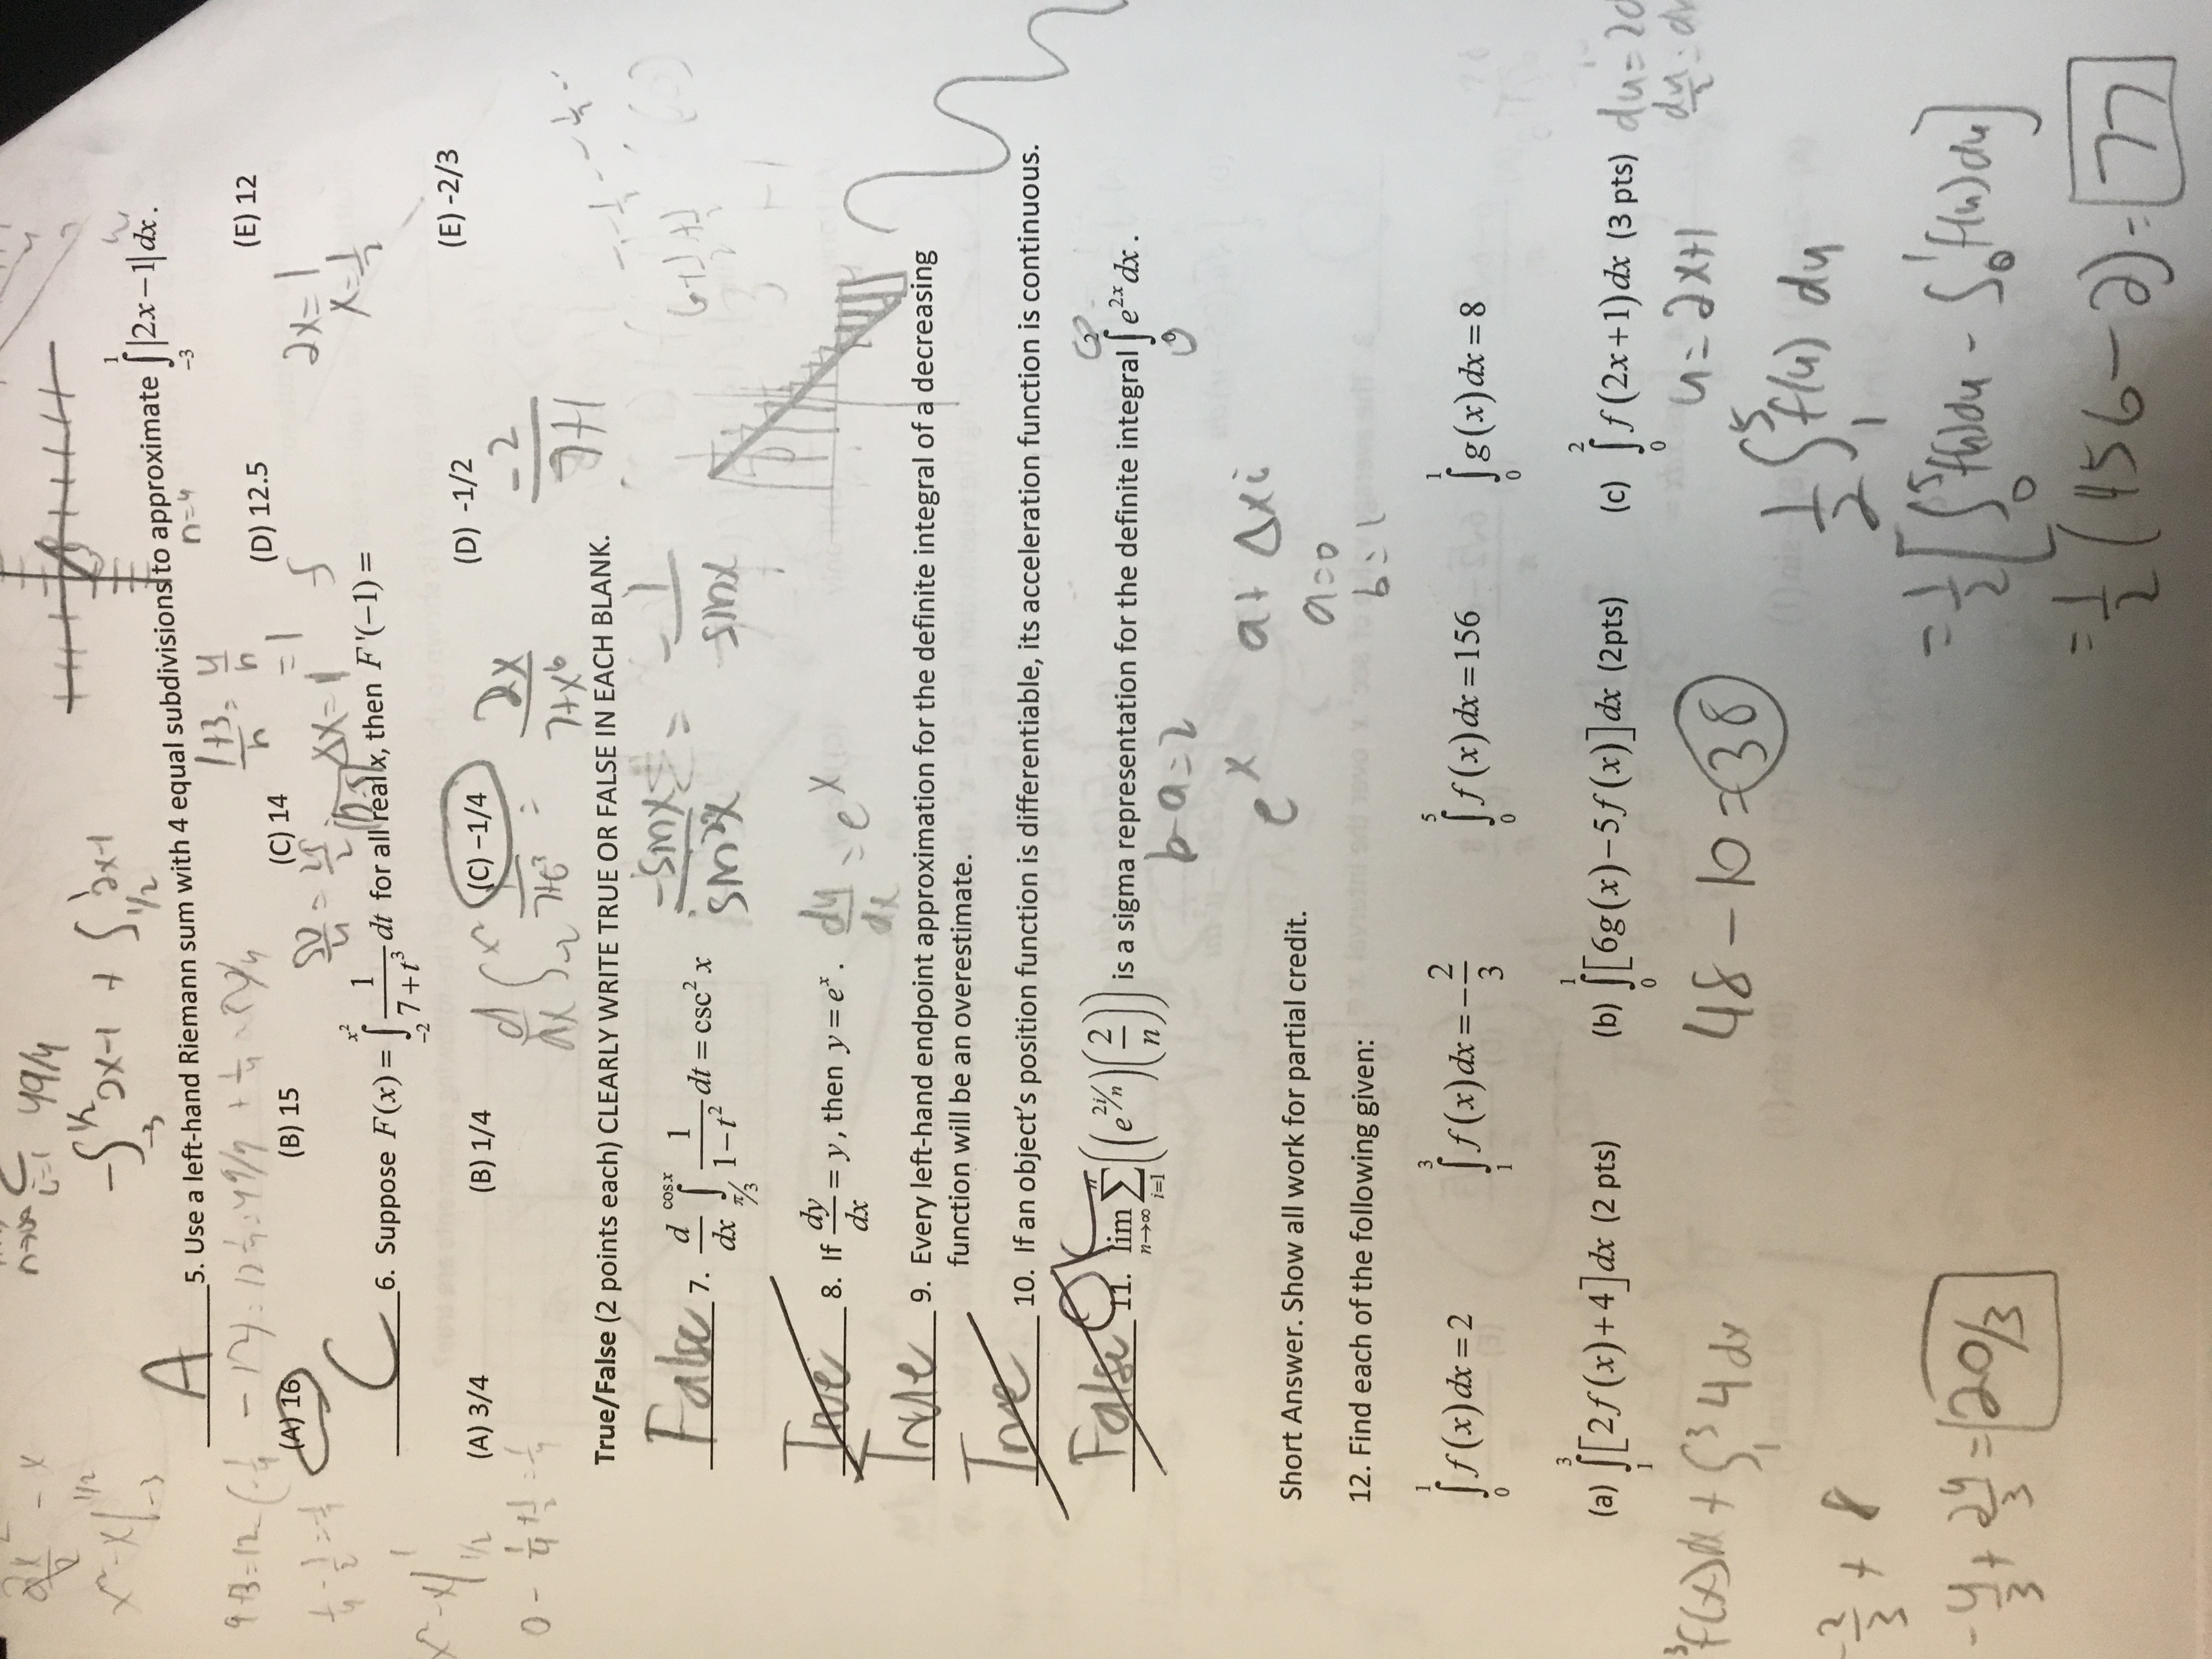 2x/2 - x
n→∞ i=1 49/4
x² - x |₋₃^1/2
-∫₋₃^1/2 2x-1 + ∫_1/2^1 2x-1
A 5. Use a left-hand Riemann sum with 4 equal subdivisions to approximate ∫₋₃^1 |2x-1| dx.
n=4
9+3=12
1+3/n = 4/n
= 1
(A) 16 (B) 15 (C) 14 (D) 12.5 (E) 12
1/4 - 1/2 = -1/4
50/4 = 25/2
Δx = 1
2x = 1
x = 1/2
C 6. Suppose F(x) = ∫₋₂^x² 1/(7+t³) dt for all real x, then F'(-1) =
x² - x |_1/2^1
(A) 3/4 (B) 1/4 (C) -1/4 (D) -1/2 (E) -2/3
0 - 1/4 + 1/2 = 1/4
d/dx ∫₋₂^x² 1/(7+t³) = 2x/(7+x⁶)
-2/(7+1)
True/False (2 points each) CLEARLY WRITE TRUE OR FALSE IN EACH BLANK.
False 7. d/dx ∫_π/3^cos x 1/(1-t²) dt = csc² x
-sinx/sin²x = -1/sinx
True 8. If dy/dx = y, then y = eˣ.
dy/dx = eˣ
True 9. Every left-hand endpoint approximation for the definite integral of a decreasing
function will be an overestimate.
True 10. If an object's position function is differentiable, its acceleration function is continuous.
False OK 11. lim n→∞ Σ i=1 n ((e^2i/n)(2/n)) is a sigma representation for the definite integral ∫₀² e^2x dx.
b-a=2
eˣ a + Δxi
Short Answer. Show all work for partial credit.
a=0
b=1
12. Find each of the following given:
∫₀¹ f(x) dx = 2 ∫₁³ f(x) dx = -2/3 ∫₀⁵ f(x) dx = 156 ∫₀¹ g(x) dx = 8
(a) ∫₁³ [2f(x)+4] dx (2 pts) (b) ∫₀¹ [6g(x)-5f(x)] dx (2pts) (c) ∫₀² f(2x+1) dx (3 pts)
³f(x)dx + ∫₁³ 4 dx
48 - 10 = 38
u = 2x+1
1/2 ∫₁⁵ f(u) du
-2/3 + 8
= 1/2 [∫₀⁵ f(u)du - ∫₀¹ f(u)du]
-4/3 + 24/3 = 20/3
= 1/2 (156 - 2) = 77